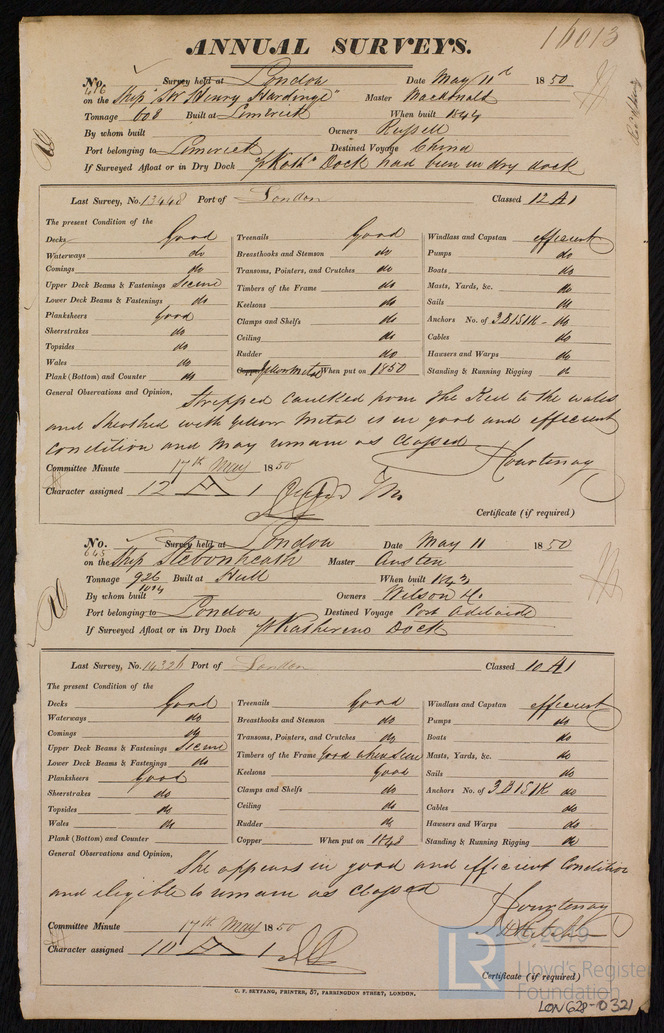 16013
ANNUAL SURVEYS.
No. 616 Survey held at London Date May 11th 1850
on the Ship "Sir Henry Hardinge" Master Macdonald
Tonnage 608 Built at Limerick When built 1844
By whom built Owners Russell
Port belonging to Limerick Destined Voyage China
If Surveyed Afloat or in Dry Dock St Kath's Dock had been in dry dock
Last Survey, No. 13448 Port of London Classed 12 A1
The present Condition of the
Decks Good Treenails Good Windlass and Capstan efficient
Waterways do Breasthooks and Stemson do Pumps do
Comings do Transoms, Pointers, and Crutches do Boats do
Upper Deck Beams & Fastenings Secure Timbers of the Frame do Masts, Yards, &c. do
Lower Deck Beams & Fastenings do Keelsons do Sails do
Planksheers Good Clamps and Shelfs do Anchors No. of 3B 1S 1K do
Sheerstrakes do Ceiling do Cables do
Topsides do Rudder do Hawsers and Warps do
Wales do Copper Yellow Metal When put on 1850 Standing & Running Rigging do
Plank (Bottom) and Counter do
General Observations and Opinion, Stripped Caulked from the Keel to the wales
and Sheathed with Yellow Metal is in good and efficient
condition and may remain as Classed
Courtenay
Committee Minute 17th May 1850
Character assigned 12 A 1
Certificate (if required)
No. 645 Survey held at London Date May 11 1850
on the Ship Stebonheath Master Austen
Tonnage 926 1014 Built at Hull When built 1843
By whom built Owners Wilson &
Port belonging to London Destined Voyage Port Adelaide
If Surveyed Afloat or in Dry Dock St Katherine Dock
Last Survey, No. 14326 Port of London Classed 10 A1
The present Condition of the
Decks Good Treenails Good Windlass and Capstan efficient
Waterways do Breasthooks and Stemson do Pumps do
Comings do Transoms, Pointers, and Crutches do Boats do
Upper Deck Beams & Fastenings Secure Timbers of the Frame Good when seen Masts, Yards, &c. do
Lower Deck Beams & Fastenings do Keelsons good Sails do
Planksheers Good Clamps and Shelfs do Anchors No. of 3B 1S 1K do
Sheerstrakes do Ceiling do Cables do
Topsides do Rudder do Hawsers and Warps do
Wales do Copper When put on 1848 Standing & Running Rigging do
Plank (Bottom) and Counter
General Observations and Opinion, She appears in good and efficient Condition
and eligible to remain as Classed
Courtenay
Committee Minute 17th May 1850
Character assigned 10 A 1
Certificate (if required)
C. F. SEYFANG, PRINTER, 57, FARRINGDON STREET, LONDON.
LR © 2019
Lloyd's Register
Foundation
LON628-0321